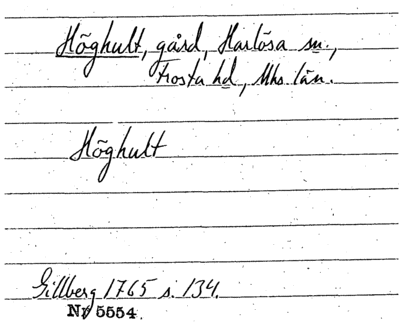 Höghult, gård, Harlösa sn.,
Frosta hd, Mhs. län.
Höghult
Gillberg 1765 s. 134.
Nr 5554.